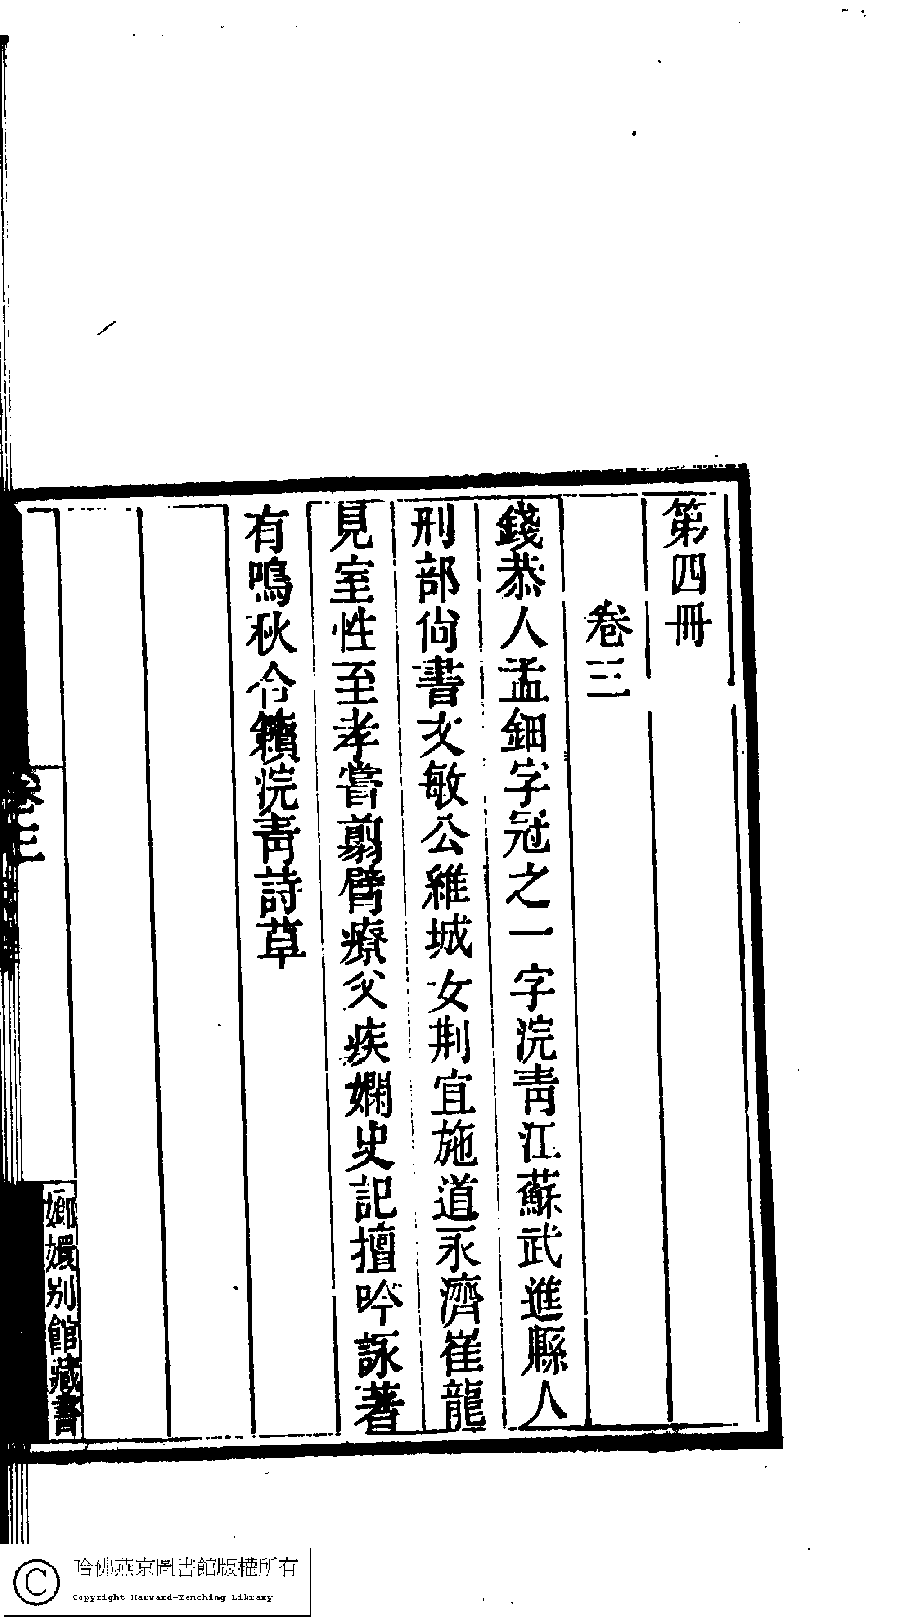 第四冊
卷三
錢恭人孟鈿字冠之一字浣青江蘇武進縣人
刑部尚書文敏公維城女荆宜施道永濟崔龍
見室性至孝嘗翦臂療父疾嫻史記擅吟詠著
有鳴秋合籟浣青詩草
卷三
嫏嬛別館藏書
哈佛燕京圖書館版權所有
Copyright Harvard-Yenching Library